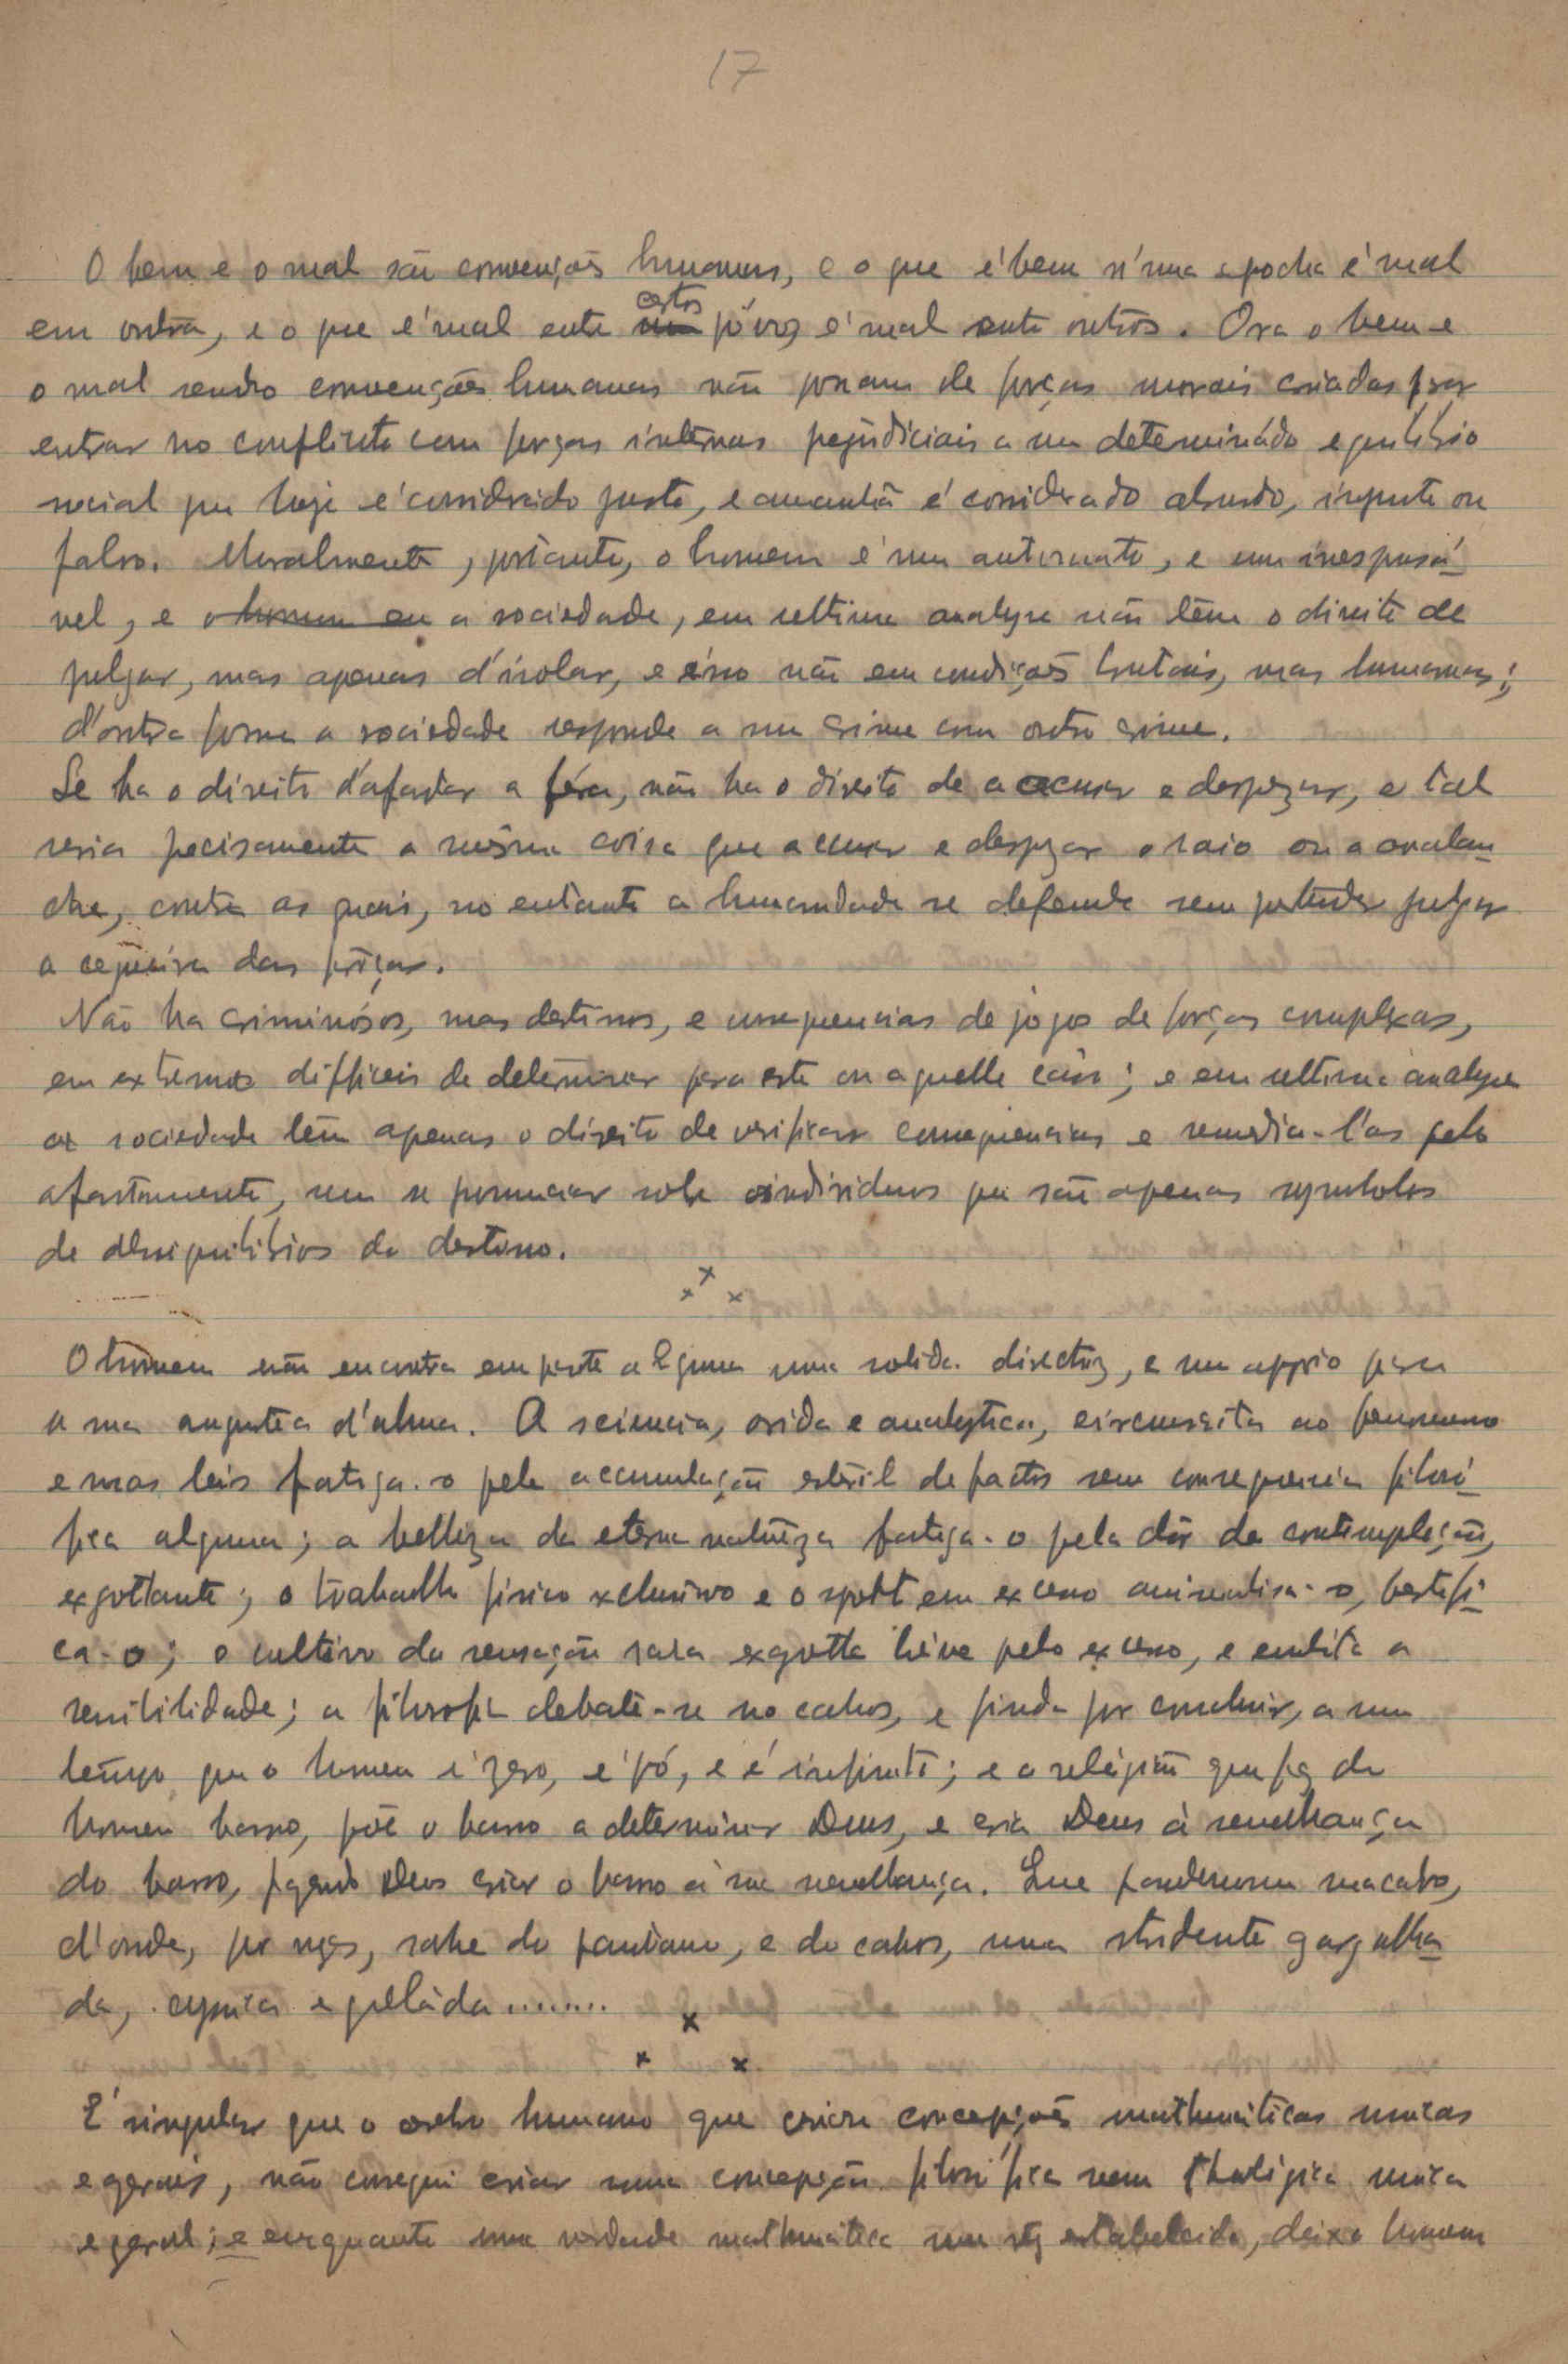 17
O bem e o mal são convenções humanas, e o que é bem n'uma epocha é mal
em outra, e o que é mal entre certos póvos é mal entre outros. Ora o bem e
o mal sendo convenções humanas não passam de forças morais criadas por
entrar no conflicto com forças internas prejudiciais a um determinádo equilibrio
social que hoje é considerado justo, e amanhã é considerado absurdo, injusto ou
falso. Moralmente, portanto, o homem é um automato, e um irresponsá-
vel, e o homem ou a sociedade, em ultima analyse não têm o direito de
julgar, mas apenas d'isolar, e isso não em condições brutais, mas humanas;
d'outra forma a sociedade responde a um crime com outro crime.
Se ha o direito d'afastar a féra, não ha o direito de a accusar e desprezar, e tal
seria precisamente a mesma coisa que accusar e desprezar o raio ou a avalan-
che, contra as quais, no entanto a humanidade se defende sem pretender julgar
a cegueira das forças.
Não ha criminósos, mas destinos, e consequencias de jogos de forças complexas,
em extremo difficeis de determinar para este ou aquelle caso; e em ultima analyse
a sociedade têm apenas o direito de verificar consequencias e remedia-l'as pelo
afastamento, sem se pronunciar sobre os individuos que são apenas symbolos
de desiquilibrios do destino.
x x x
O homem não encontra em parte alguma uma solida directriz, e um appoio para
a sua angustia d'alma. A sciencia, arida e analytica, circumscrita ao fenomeno
e suas leis fatiga-o pela accumulação estéril de factos sem consequencia filosó-
fica alguma; a belleza da eterna natureza fatiga-o pela dôr da contemplação,
exgottante; o trabalho fisico exclusivo e o sport em excesso animalisa-o, bestifi-
ca-o; o cultivo da sensação rara exgotta breve pelo excesso, e embota a
sensibilidade; a filosofia debate-se no cahos, e finda por concluir, a um
tempo que o homem é zero, é pó, e é infinito; e a religião que fez do
homem barro, põe o barro a determinar Deus, e cria Deus á semelhança
do barro, fazendo Deus criar o barro á sua semelhança. Que pandemonium macabro,
d'onde, por vezes, sahe do pantano, e do cahos, uma stridente gargalha-
da, cynica e gelada........
x x x
É singular que o cerebro humano que criou concepções mathemáticas unicas
e gerais, não consegui criar uma concepção filosófica nem theologica unica
e geral; e enquanto uma verdade mathemática uma vez estabelecida, deixa o homem